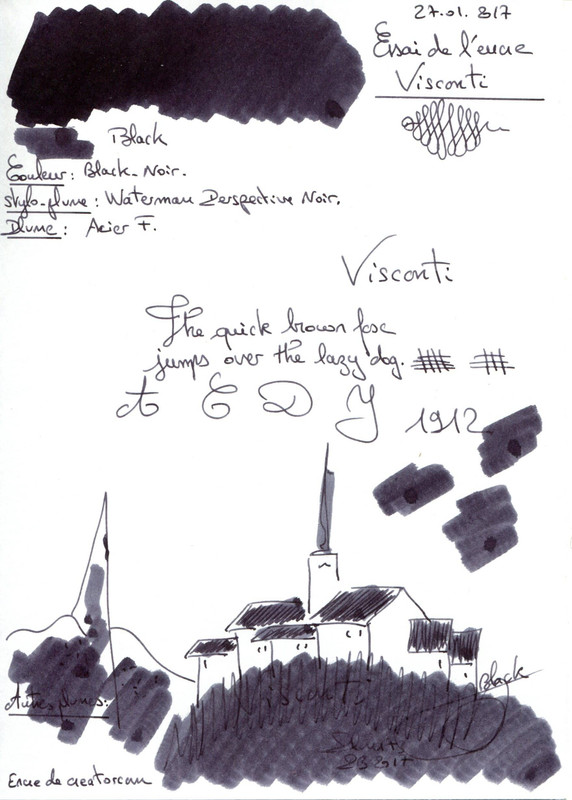 27.01.2017
Essai de l'encre
Visconti
Black
Couleur: Black-Noir.
Stylo-plume: Waterman Perspective Noir.
Plume: Acier F.
Visconti
The quick brown fox
jumps over the lazy dog.
A E D Y 1912
Black
Visconti
Autres plumes:
2017
Encre de creatorcom